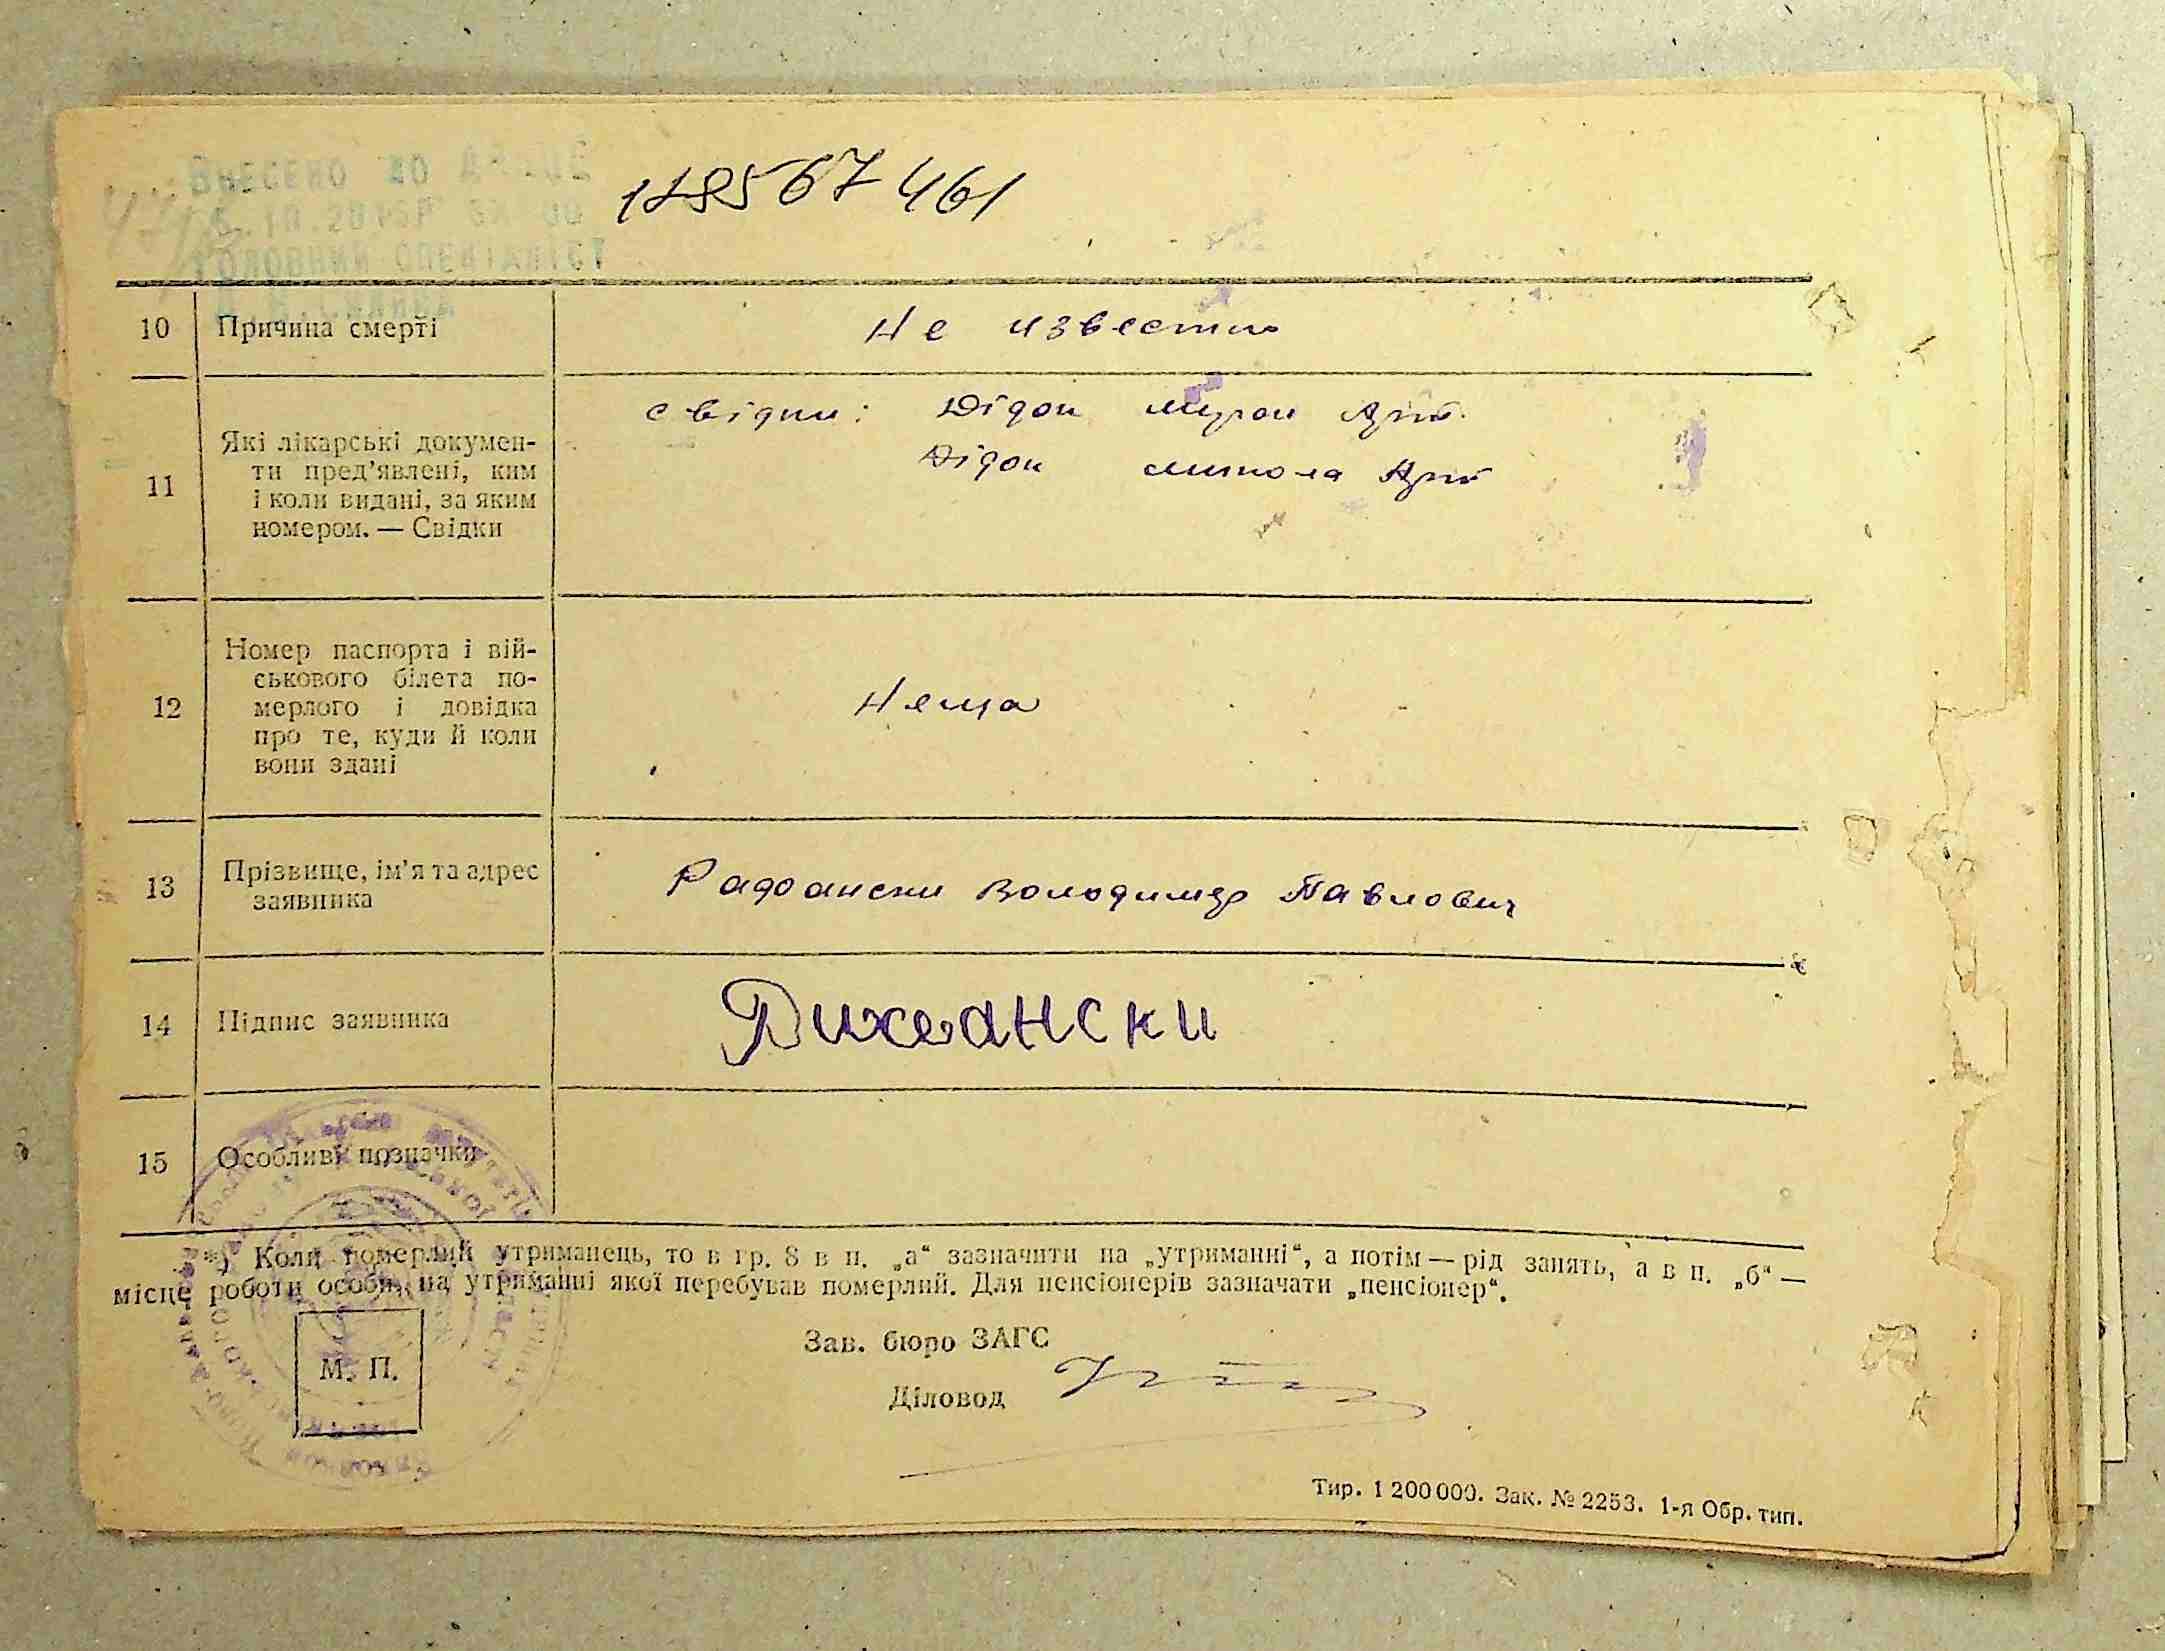 ВНЕСЕНО ДО
ГОЛОВНИЙ СПЕЦІАЛІСТ
10 Причина смерті Не известно
11 Які лікарські докумен-
ти пред'явлені, ким
і коли видані, за яким
номером. — Свідки
свідки: Дідон Мирон
Дідон Микола
12 Номер паспорта і вій-
ськового білета по-
мерлого і довідка
про те, куди й коли
вони здані
Нема
13 Прізвище, ім'я та адрес
заявника
Володимир Павлович
14 Підпис заявника
15 Особливі позначки
*) Коли померлий утриманець, то в гр. 8 в п. „а“ зазначити на „утриманні“, а потім — рід занять, а в п. „б“ —
місце роботи особи, на утриманні якої перебував померлий. Для пенсіонерів зазначати „пенсіонер“.
М. П.
Зав. бюро ЗАГС
Діловод
Тир. 1 200 000. Зак. № 2253. 1-я Обр. тип.